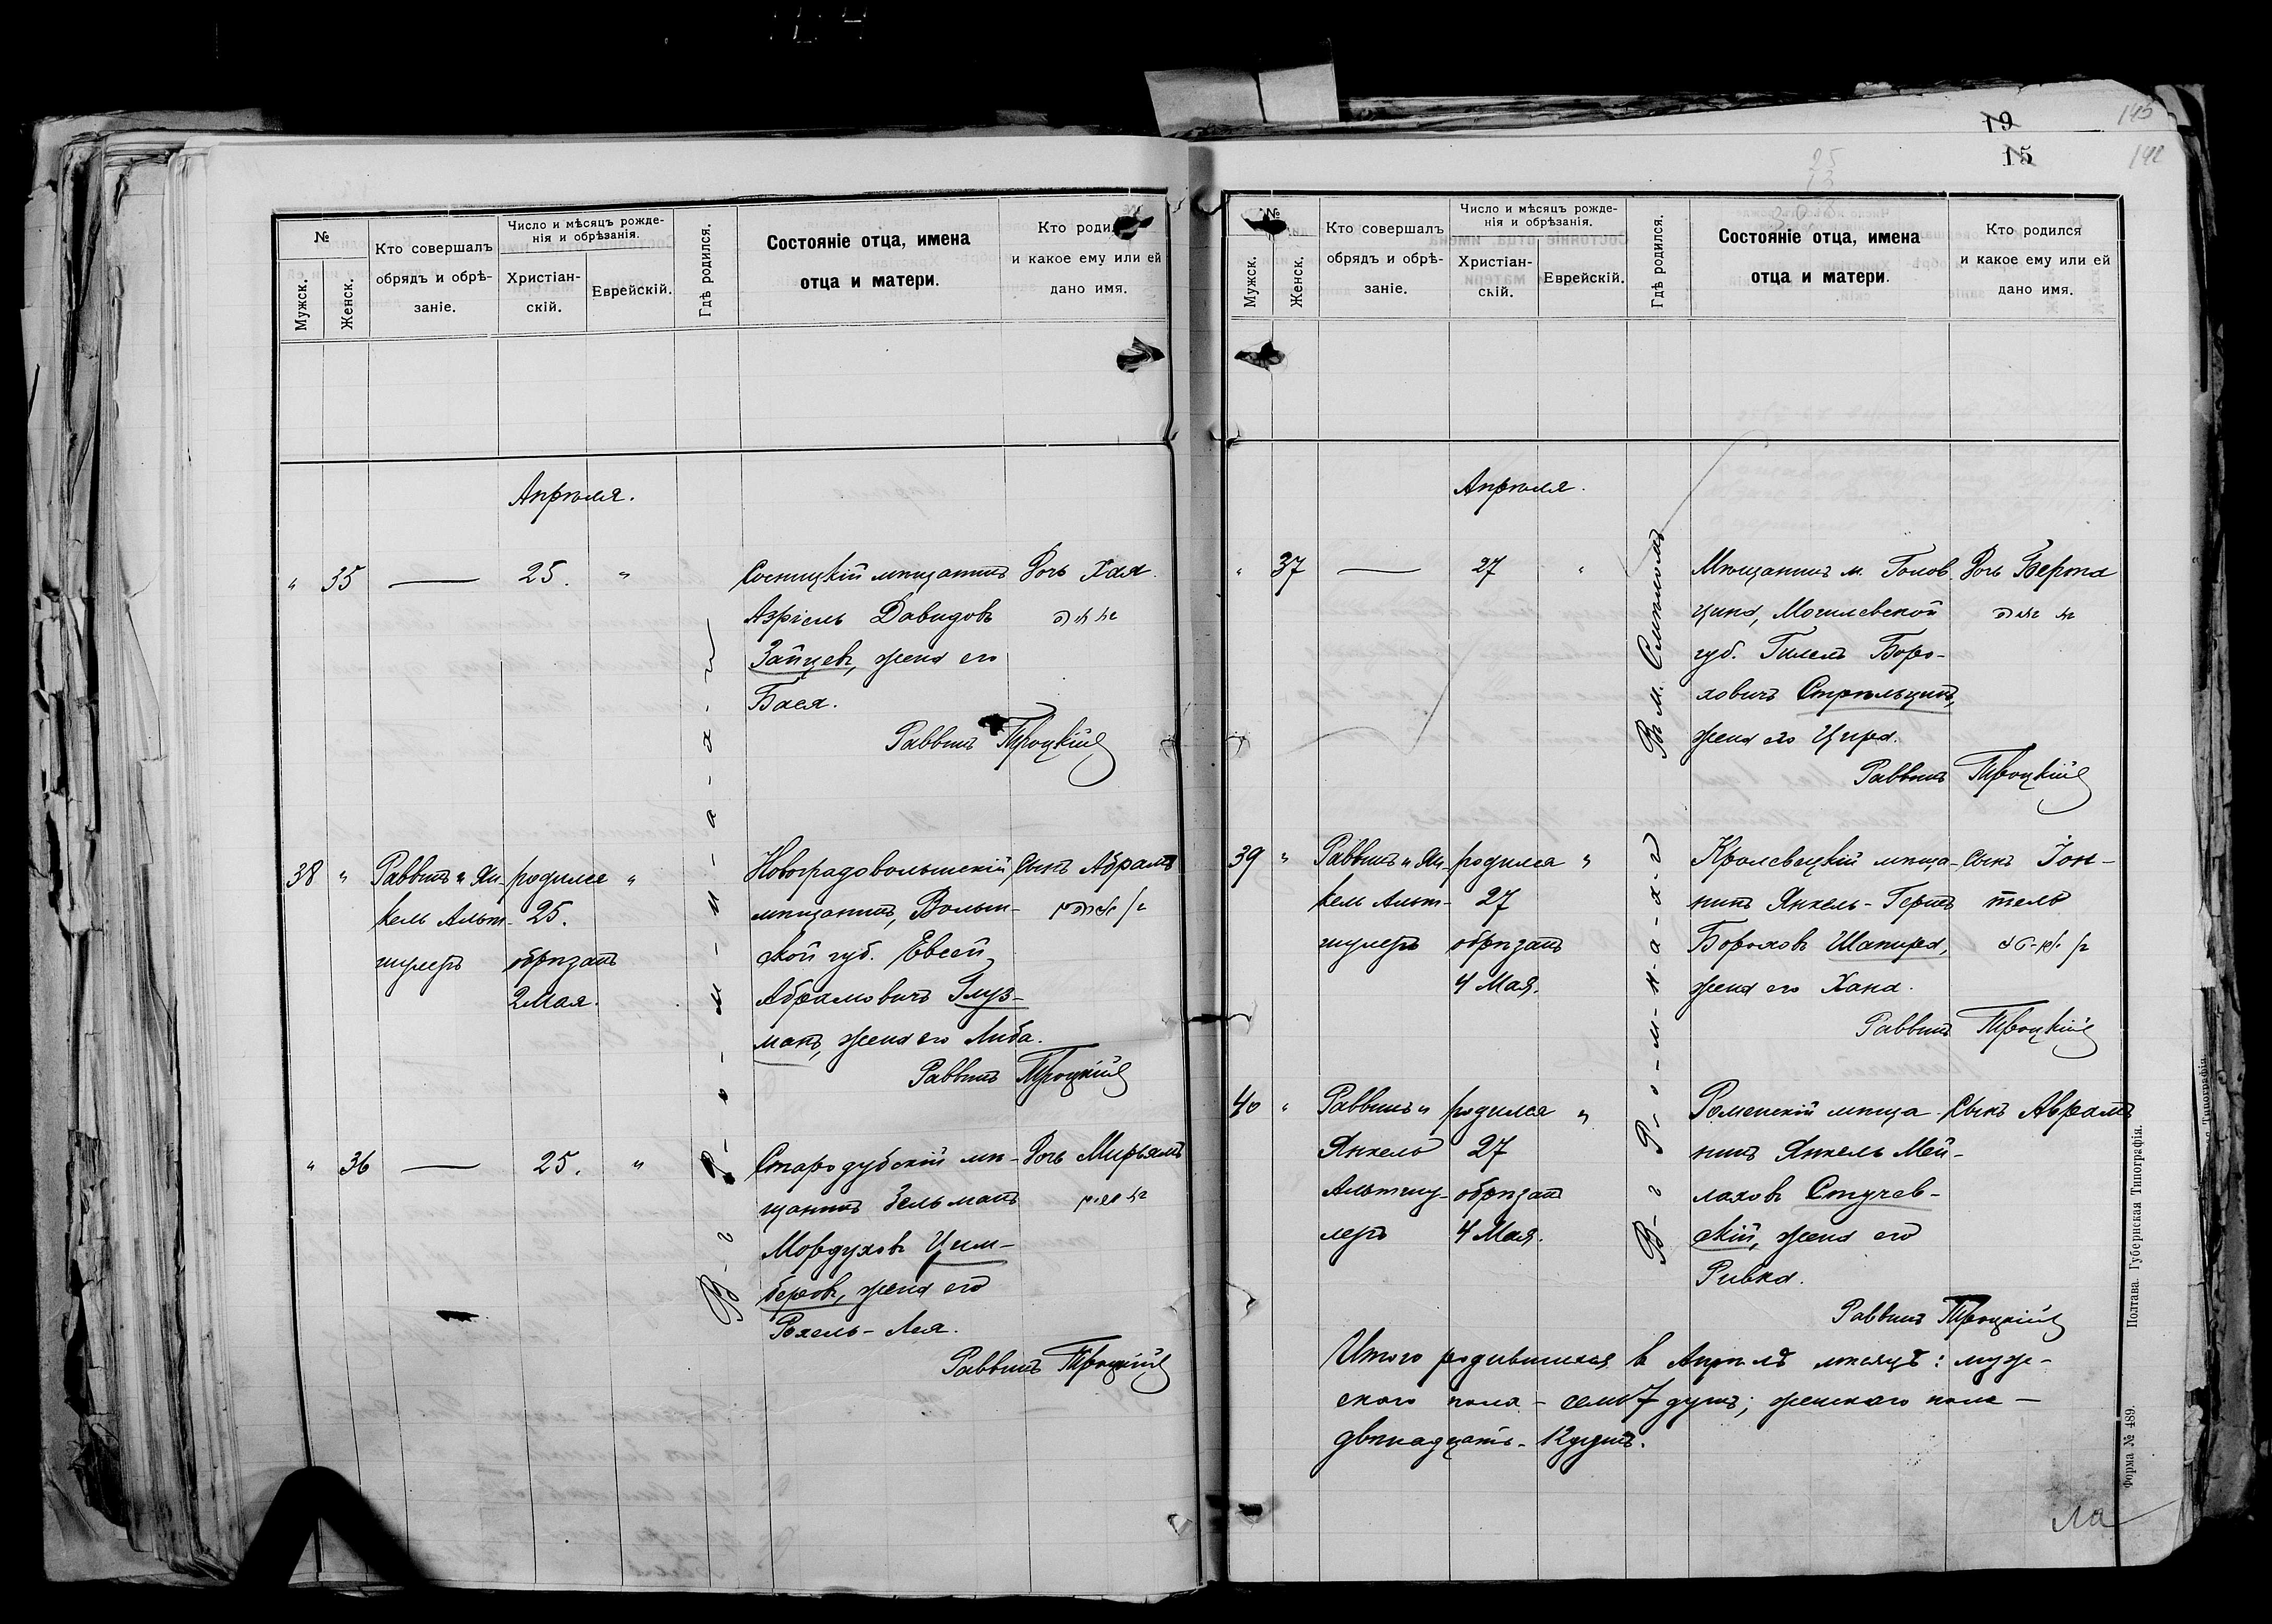 19
15
145
142
25
13
303
№
Мужск.
Женск.
Кто совершалъ
обрядъ и обрѣ-
заніе.
Число и мѣсяцъ рожде-
нія и обрѣзанія.
Христіан-
скій.
Еврейскій.
Гдѣ родился.
Состояніе отца, имена
отца и матери.
Кто роди
и какое ему или ей
дано имя.
Апрѣля.
" 35 — 25. "
Сосницкій мѣщанинъ
Азріель Давидовъ
Зайцев, жена его
Бася.
Дочь Хая.
Раввинъ Троцкій
38 "
Раввинъ и Ян-
кель Альт-
шулеръ
родился "
25.
обрѣзанъ
2 Мая.
Новоградоволынскій
мѣщанинъ, Волын-
ской губ. Евсей
Абрамовичъ Глуз-
манъ, жена его Либа.
Сынъ Абрамъ
Раввинъ Троцкій
" 36 — 25. "
Стародубскій мѣ-
щанинъ Зельманъ
Мордуховъ Цим-
беровъ, жена его
Рохель-Лея.
Дочь Мирьямъ
Раввинъ Троцкій
В-г Р-о-м-н-а-х-ъ
№
Мужск.
Женск.
Кто совершалъ
обрядъ и обрѣ-
заніе.
Число и мѣсяцъ рожде-
нія и обрѣзанія.
Христіан-
скій.
Еврейскій.
Гдѣ родился.
Состояніе отца, имена
отца и матери.
Кто родился
и какое ему или ей
дано имя.
Апрѣля.
" 37 — 27 "
Въ м. Смѣломъ
Мѣщанинъ м. Голов
цина, Могилевской
губ. Гилель Боро-
ховичъ Стрѣльцинъ,
жена его Цира.
Дочь Берта
Раввинъ Троцкій
39 "
Раввинъ и Ян-
кель Альт-
шулеръ
родился "
27
обрѣзанъ
4 Мая.
Кролевецкій мѣща-
нинъ Янкель-Герцъ
Бороховъ Шапира,
жена его Хана.
Сынъ Іон-
тель
Раввинъ Троцкій
40 "
Раввинъ и
Янкель
Альтшу-
леръ
родился "
27
обрѣзанъ
4 Мая.
Роменскій мѣща
нинъ Янкель Мей-
лаховъ Стучев-
скій, жена его
Ривка.
Сынъ Авраамъ
Раввинъ Троцкій
В-г Р-о-м-н-а-х-ъ
Итого родившихся в Апрѣлѣ мѣсяцѣ: муж-
ского пола - семь 7 душъ; женского пола -
двѣнадцать - 12 душъ.
Полтава. Губернская Типографія.
Форма № 489.